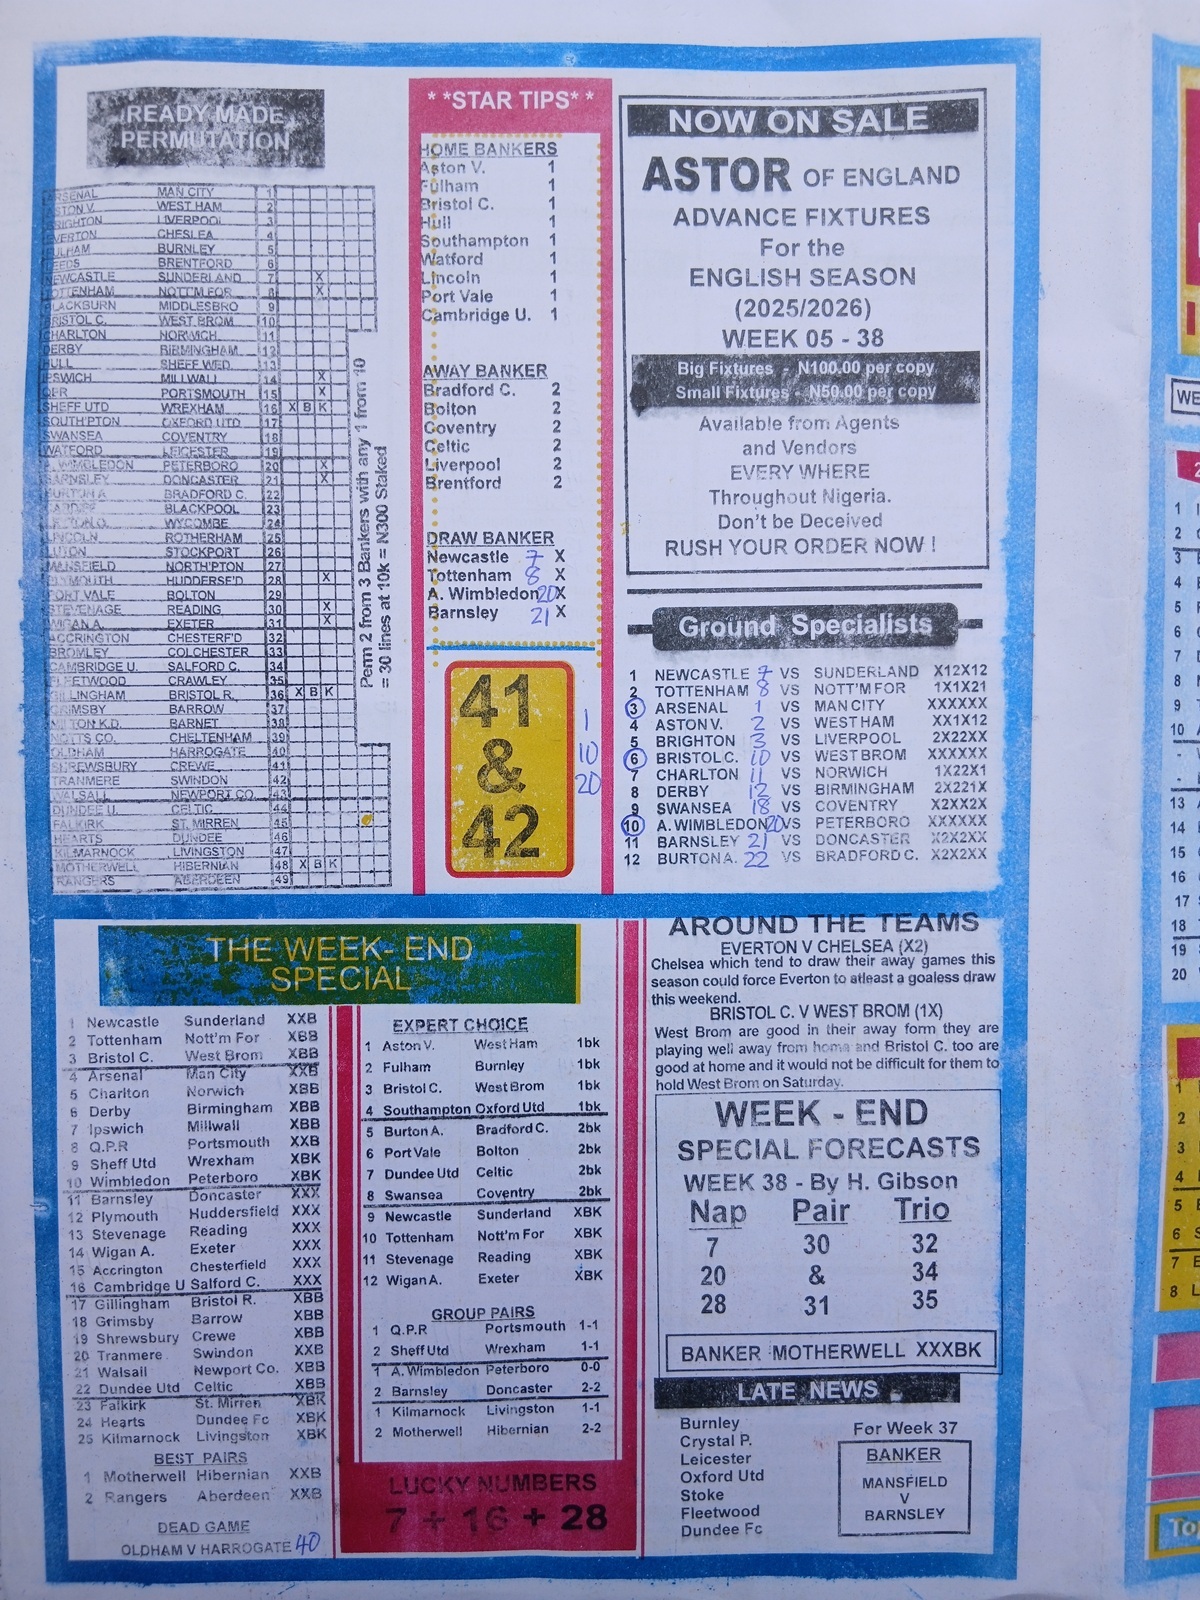 READY MADE
PERMUTATION
ARSENAL MAN CITY 1
ASTON V. WEST HAM 2
BRIGHTON LIVERPOOL 3
EVERTON CHESLEA 4
FULHAM BURNLEY 5
LEEDS BRENTFORD 6
NEWCASTLE SUNDERLAND 7 X
TOTTENHAM NOTT'M FOR 8 X
BLACKBURN MIDDLESBRO 9
BRISTOL C. WEST BROM 10
CHARLTON NORWICH 11
DERBY BIRMINGHAM 12
HULL SHEFF WED 13
IPSWICH MILLWALL 14 X
QPR PORTSMOUTH 15 X
SHEFF UTD WREXHAM 16 X B K
SOUTH'PTON OXFORD UTD 17
SWANSEA COVENTRY 18
WATFORD LEICESTER 19
A. WIMBLEDON PETERBORO 20 X
BARNSLEY DONCASTER 21 X
BURTON A BRADFORD C. 22
CARDIFF BLACKPOOL 23
WYCOMBE 24
LINCOLN ROTHERHAM 25
LUTON STOCKPORT 26
MANSFIELD NORTH'PTON 27
PLYMOUTH HUDDERSF'D 28 X
PORT VALE BOLTON 29
STEVENAGE READING 30 X
WIGAN A. EXETER 31 X
ACCRINGTON CHESTERF'D 32
BROMLEY COLCHESTER 33
CAMBRIDGE U. SALFORD C. 34
FLEETWOOD CRAWLEY 35
GILLINGHAM BRISTOL R. 36 X B K
GRIMSBY BARROW 37
MILTON K.D. BARNET 38
NOTTS CO. CHELTENHAM 39
OLDHAM HARROGATE 40
SHREWSBURY CREWE 41
TRANMERE SWINDON 42
WALSALL NEWPORT CO. 43
DUNDEE U. CELTIC 44
FALKIRK ST. MIRREN 45
HEARTS DUNDEE 46
KILMARNOCK LIVINGSTON 47
MOTHERWELL HIBERNIAN 48 X B K
RANGERS ABERDEEN 49
Perm 2 from 3 Bankers with any 1 from 10
= 30 lines at 10k = N300 Staked
* *STAR TIPS* *
HOME BANKERS
Aston V. 1
Fulham 1
Bristol C. 1
Hull 1
Southampton 1
Watford 1
Lincoln 1
Port Vale 1
Cambridge U. 1
AWAY BANKER
Bradford C. 2
Bolton 2
Coventry 2
Celtic 2
Liverpool 2
Brentford 2
DRAW BANKER
Newcastle 7 X
Tottenham 8 X
A. Wimbledon 20 X
Barnsley 21 X
41
&
42
1
10
20
NOW ON SALE
ASTOR OF ENGLAND
ADVANCE FIXTURES
For the
ENGLISH SEASON
(2025/2026)
WEEK 05 - 38
Big Fixtures - N100.00 per copy
Small Fixtures - N50.00 per copy
Available from Agents
and Vendors
EVERY WHERE
Throughout Nigeria.
Don't be Deceived
RUSH YOUR ORDER NOW !
Ground Specialists
1 NEWCASTLE 7 VS SUNDERLAND X12X12
2 TOTTENHAM 8 VS NOTT'M FOR 1X1X21
3 ARSENAL 1 VS MAN CITY XXXXXX
4 ASTON V. 2 VS WEST HAM XX1X12
5 BRIGHTON 3 VS LIVERPOOL 2X22XX
6 BRISTOL C. 10 VS WEST BROM XXXXXX
7 CHARLTON 11 VS NORWICH 1X22X1
8 DERBY 12 VS BIRMINGHAM 2X221X
9 SWANSEA 18 VS COVENTRY X2XX2X
10 A. WIMBLEDON 20 VS PETERBORO XXXXXX
11 BARNSLEY 21 VS DONCASTER X2X2XX
12 BURTON A. 22 VS BRADFORD C. X2X2XX
THE WEEK- END
SPECIAL
1 Newcastle Sunderland XXB
2 Tottenham Nott'm For XBB
3 Bristol C. West Brom XBB
4 Arsenal Man City XXB
5 Charlton Norwich XBB
6 Derby Birmingham XBB
7 Ipswich Millwall XBB
8 Q.P.R Portsmouth XXB
9 Sheff Utd Wrexham XBK
10 Wimbledon Peterboro XBK
11 Barnsley Doncaster XXX
12 Plymouth Huddersfield XXX
13 Stevenage Reading XXX
14 Wigan A. Exeter XXX
15 Accrington Chesterfield XXX
16 Cambridge U Salford C. XXX
17 Gillingham Bristol R. XBB
18 Grimsby Barrow XBB
19 Shrewsbury Crewe XBB
20 Tranmere Swindon XXB
21 Walsall Newport Co. XBB
22 Dundee Utd Celtic XBB
23 Falkirk St. Mirren XBK
24 Hearts Dundee Fc XBK
25 Kilmarnock Livingston XBK
BEST PAIRS
1 Motherwell Hibernian XXB
2 Rangers Aberdeen XXB
DEAD GAME
OLDHAM V HARROGATE 40
EXPERT CHOICE
1 Aston V. West Ham 1bk
2 Fulham Burnley 1bk
3 Bristol C. West Brom 1bk
4 Southampton Oxford Utd 1bk
5 Burton A. Bradford C. 2bk
6 Port Vale Bolton 2bk
7 Dundee Utd Celtic 2bk
8 Swansea Coventry 2bk
9 Newcastle Sunderland XBK
10 Tottenham Nott'm For XBK
11 Stevenage Reading XBK
12 Wigan A. Exeter XBK
GROUP PAIRS
1 Q.P.R Portsmouth 1-1
2 Sheff Utd Wrexham 1-1
1 A. Wimbledon Peterboro 0-0
2 Barnsley Doncaster 2-2
1 Kilmarnock Livingston 1-1
2 Motherwell Hibernian 2-2
LUCKY NUMBERS
7 + 16 + 28
AROUND THE TEAMS
EVERTON V CHELSEA (X2)
Chelsea which tend to draw their away games this
season could force Everton to atleast a goaless draw
this weekend.
BRISTOL C. V WEST BROM (1X)
West Brom are good in their away form they are
playing well away from home and Bristol C. too are
good at home and it would not be difficult for them to
hold West Brom on Saturday.
WEEK - END
SPECIAL FORECASTS
WEEK 38 - By H. Gibson
Nap Pair Trio
7 30 32
20 & 34
28 31 35
BANKER MOTHERWELL XXXBK
LATE NEWS
Burnley
Crystal P.
Leicester
Oxford Utd
Stoke
Fleetwood
Dundee Fc
For Week 37
BANKER
MANSFIELD
V
BARNSLEY